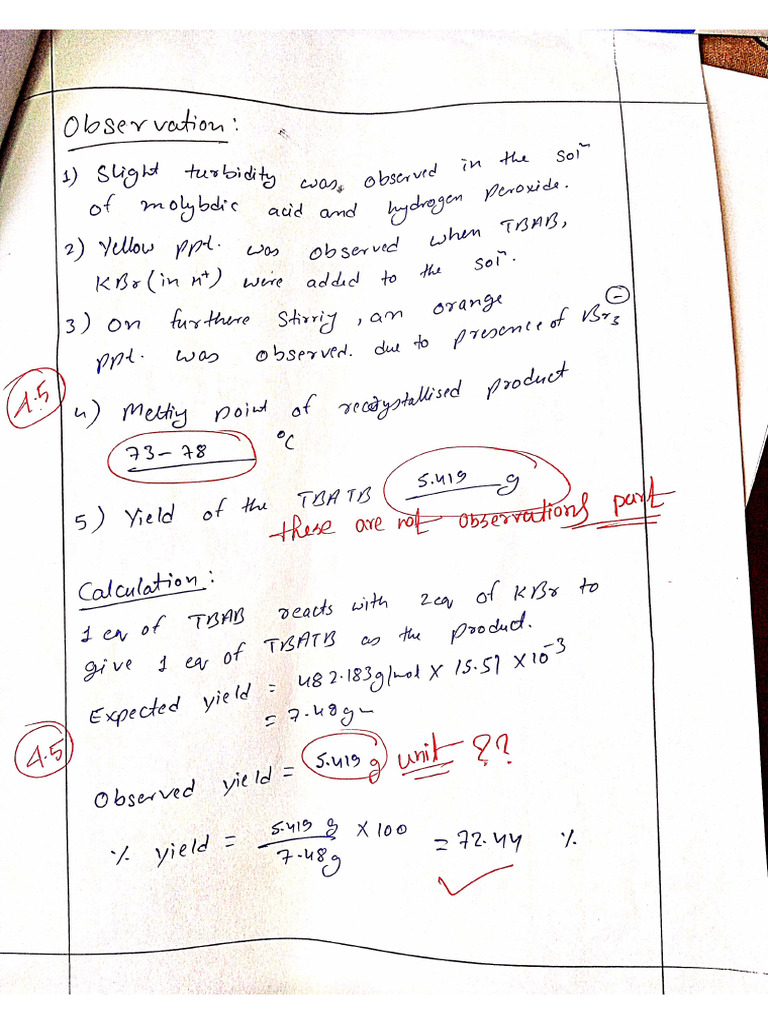 Observation:
1) Slight turbidity was observed in the solⁿ
of molybdic acid and hydrogen peroxide.
2) Yellow ppt. was observed when TBAB,
KBr (in H⁺) were added to the solⁿ.
3) On furthere stirriy, an orange
ppt. was observed. due to presence of Br₃⊖
4.5
4) Meltiy point of recrystallised product
73-78 °C
5) Yield of the TBATB 5.419 g
these are not observations part
Calculation:
1 eq of TBAB reacts with 2eq of KBr to
give 1 eq of TBATB as the product.
Expected yield = 482.183g/mol × 15.51 × 10⁻³
= 7.48g
4.5
Observed yield = 5.419 g unit ??
% yield = 5.419 g / 7.48g × 100 = 72.44 %